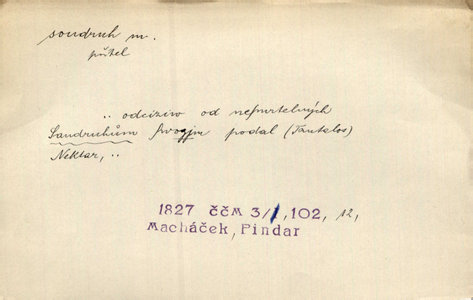 soudruh m.
přítel
.. odciziv od nesmrtelných
Saudruhům swogjm podal (Tantalos)
Nektar, ..
1827 ČČM 3/1,102, 12,
Macháček, Pindar